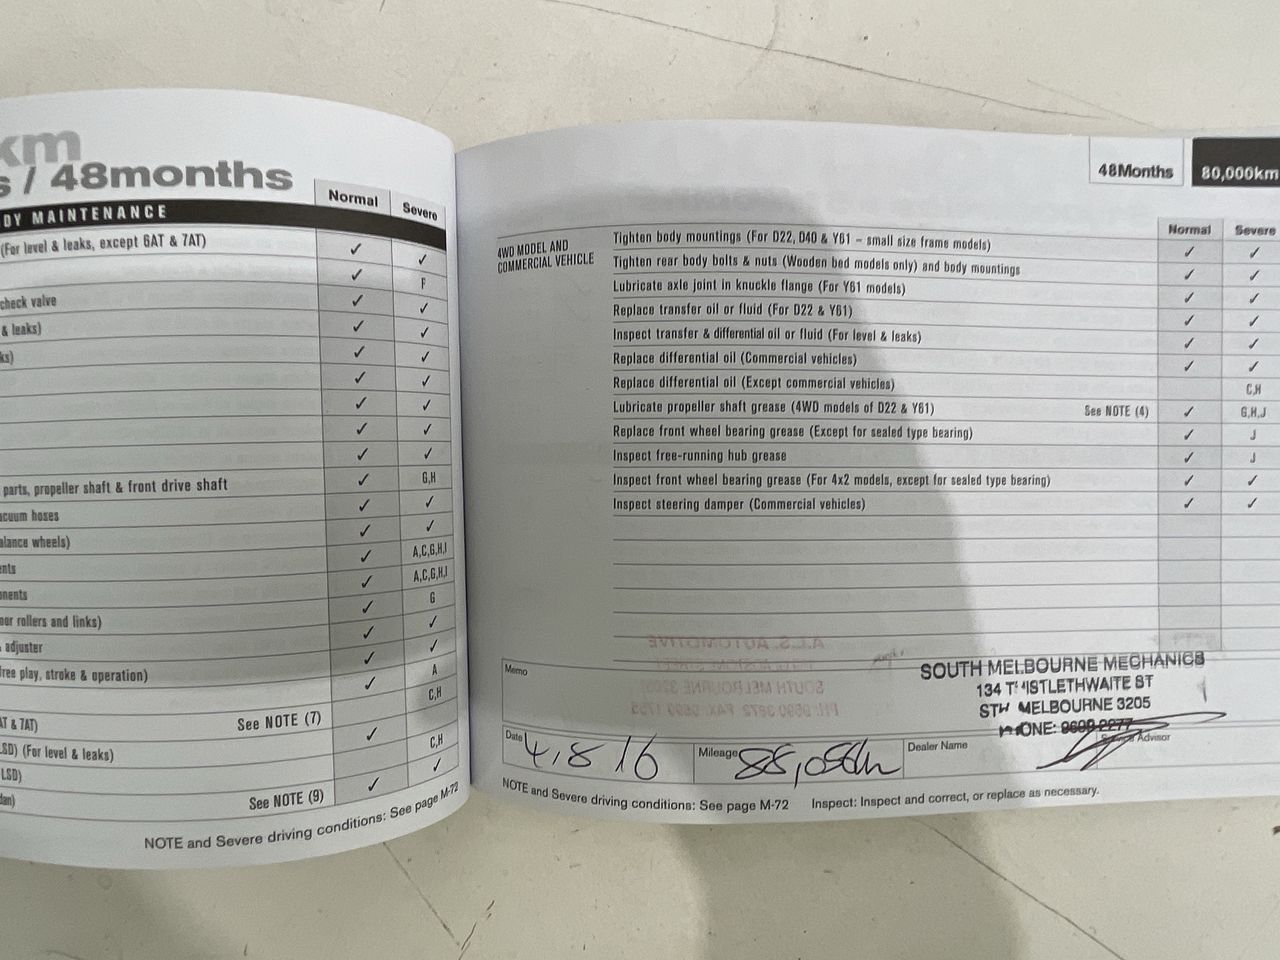 km
s / 48months
Normal Severe
DY MAINTENANCE
(For level & leaks, except 6AT & 7AT) ✓ ✓
✓ F
check valve ✓ ✓
& leaks) ✓ ✓
ks) ✓ ✓
✓ ✓
✓ ✓
✓ ✓
✓ ✓
parts, propeller shaft & front drive shaft ✓ G,H
acuum hoses ✓ ✓
alance wheels) ✓ ✓
ents ✓ A,C,G,H,I
onents ✓ A,C,G,H,I
oor rollers and links) ✓ G
& adjuster ✓ ✓
free play, stroke & operation) ✓ ✓
✓ A
AT & 7AT) See NOTE (7) C,H
LSD) (For level & leaks) ✓
LSD) C,H
dan) See NOTE (9) ✓ ✓
NOTE and Severe driving conditions: See page M-72
48Months 80,000km
Normal Severe
4WD MODEL AND
COMMERCIAL VEHICLE
Tighten body mountings (For D22, D40 & Y61 – small size frame models) ✓ ✓
Tighten rear body bolts & nuts (Wooden bed models only) and body mountings ✓ ✓
Lubricate axle joint in knuckle flange (For Y61 models) ✓ ✓
Replace transfer oil or fluid (For D22 & Y61) ✓ ✓
Inspect transfer & differential oil or fluid (For level & leaks) ✓ ✓
Replace differential oil (Commercial vehicles) ✓ ✓
Replace differential oil (Except commercial vehicles) C,H
Lubricate propeller shaft grease (4WD models of D22 & Y61) See NOTE (4) ✓ G,H,J
Replace front wheel bearing grease (Except for sealed type bearing) ✓ J
Inspect free-running hub grease ✓ J
Inspect front wheel bearing grease (For 4x2 models, except for sealed type bearing) ✓ ✓
Inspect steering damper (Commercial vehicles) ✓ ✓
A.L.S. AUTOMOTIVE
SOUTH MELBOURNE 3205
Memo
SOUTH MELBOURNE MECHANICS
134 THISTLETHWAITE ST
STH MELBOURNE 3205
PHONE: 9699 2277
Date 4,8 16 Mileage Dealer Name Advisor
NOTE and Severe driving conditions: See page M-72 Inspect: Inspect and correct, or replace as necessary.